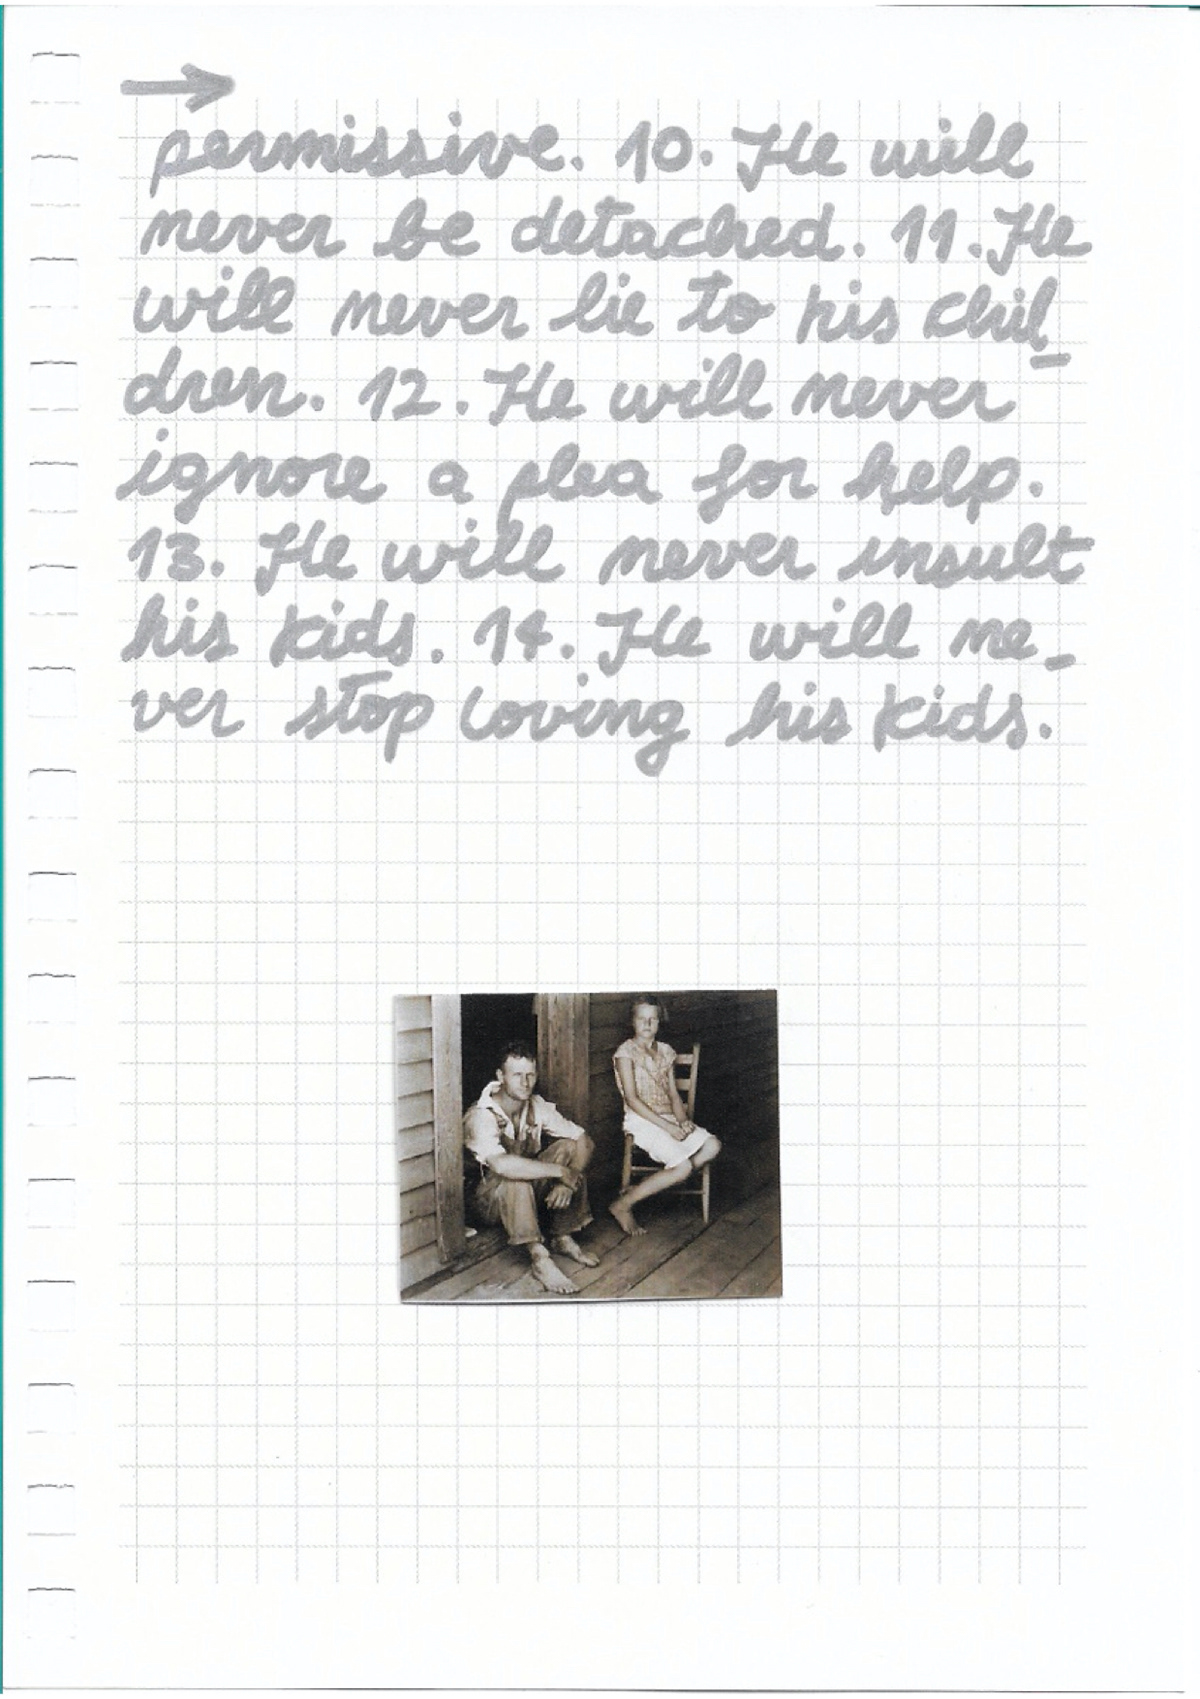 →
permissive. 10. He will
never be detached. 11. He
will never lie to his chil_
dren. 12. He will never
ignore a plea for help.
13. He will never insult
his kids. 14. He will ne_
ver stop loving his kids.